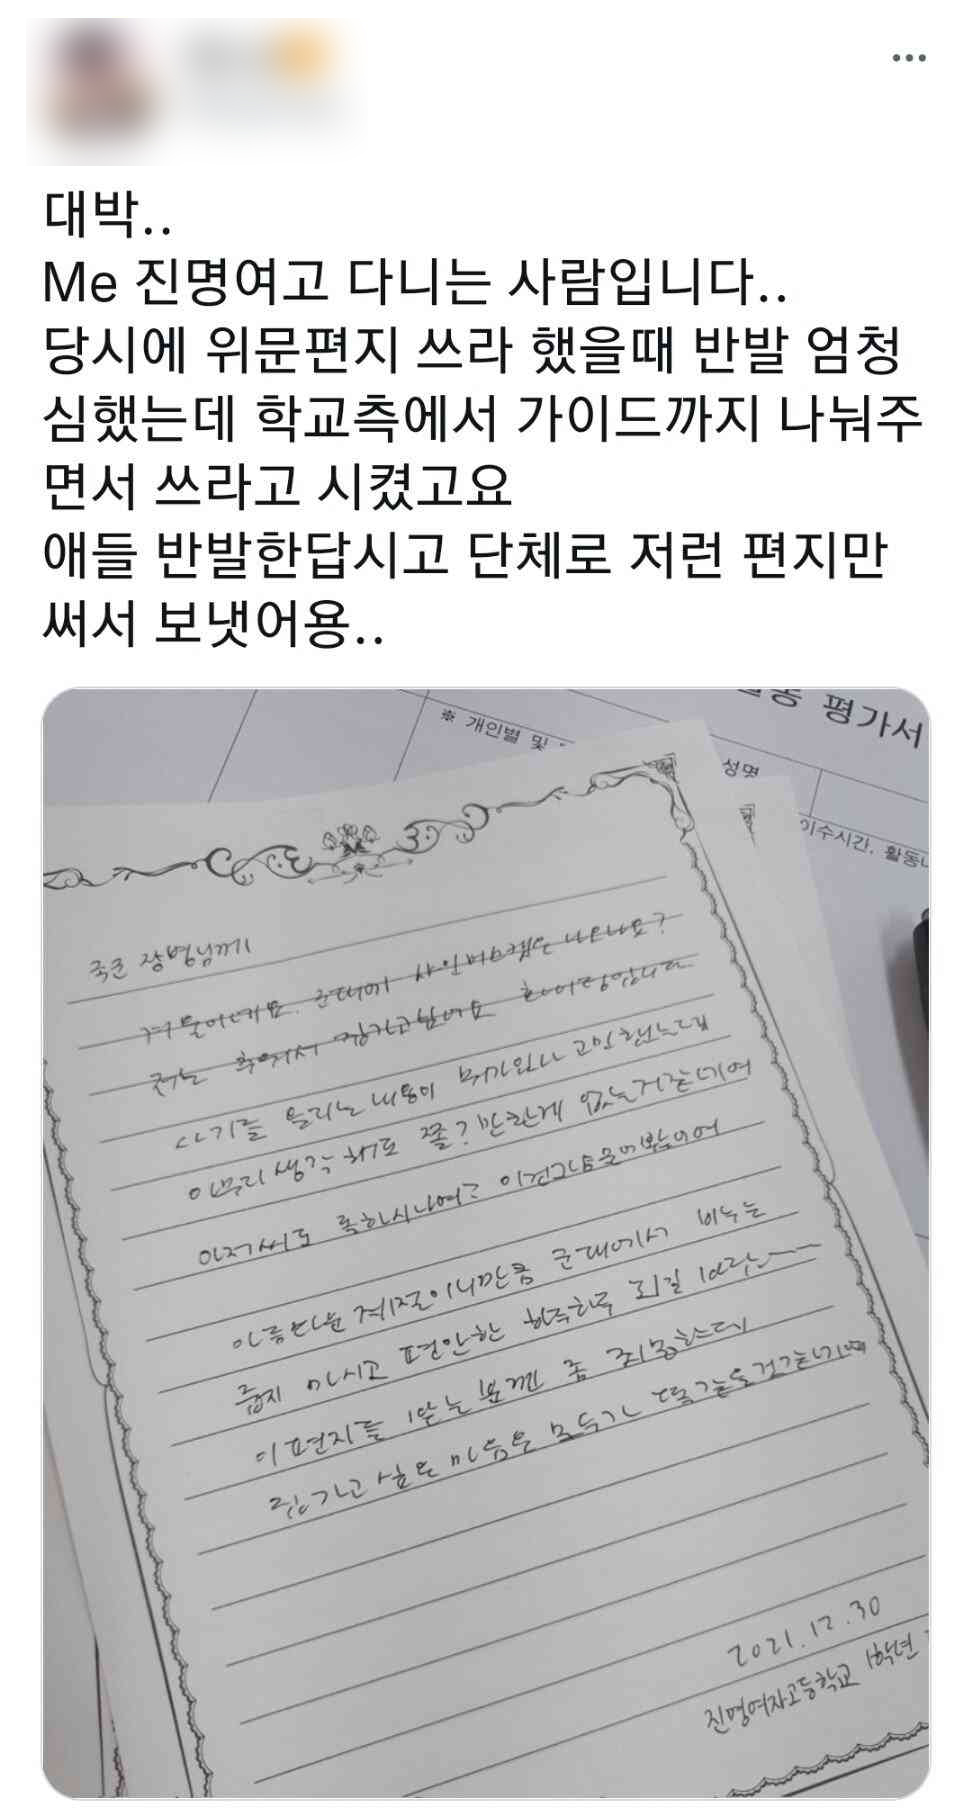 대박..
Me 진명여고 다니는 사람입니다..
당시에 위문편지 쓰라 했을때 반발 엄청
심했는데 학교측에서 가이드까지 나눠주
면서 쓰라고 시켰고요
애들 반발한답시고 단체로 저런 편지만
써서 보냇어용..
평가서
※ 개인별 및
성명
이수시간, 활동내
국군 장병님께
겨울이네요. 군대에 샤인머스캣은 나오나요?
저는 추워서 집가고싶네요
사기를 올리는 내용이 뭐가있나 고민했는데
아무리 생각해도 쫄?만한게 없는거같네여
아름다운 계절이니만큼 군대에서 비누는
줍지 마시고 편안한 하루하루 되길 바라~~~
이 편지를 받는 분껜 좀 죄송한데
집가고 싶은 마음은 모두가
2021.12.30
진명여자고등학교 1학년